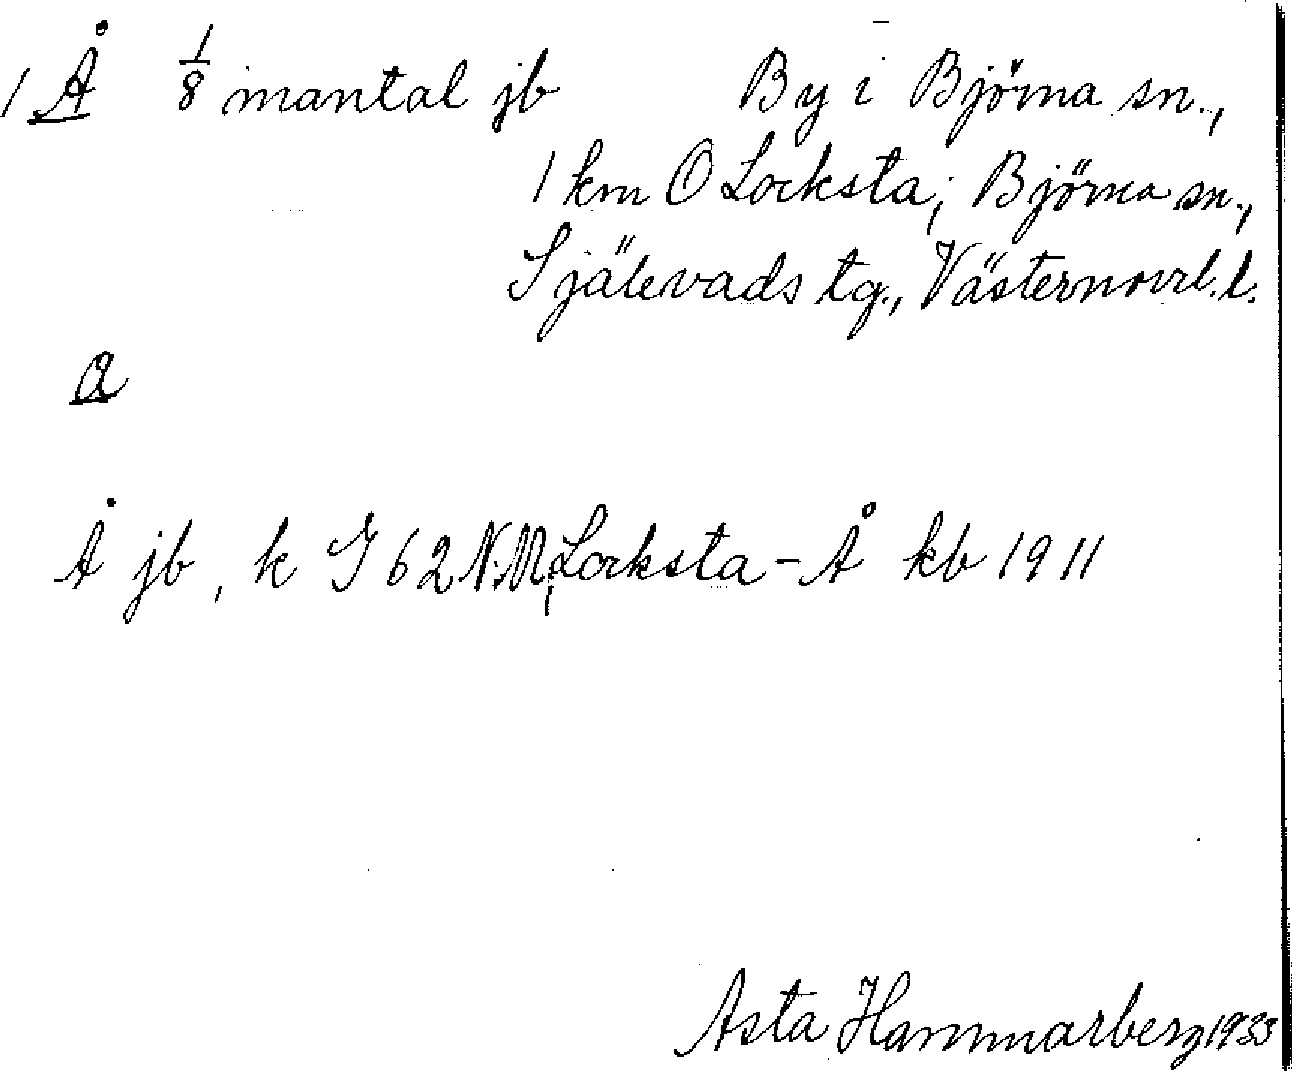 1 Å 1/8 mantal jb By i Björna sn.,
1 km O Locksta, Björna sn.,
Själevads tg., Västernorrl. l.
a
Å jb, k I 62 N.M., Locksta-Å kb 1911
Asta Hammarberg 1933